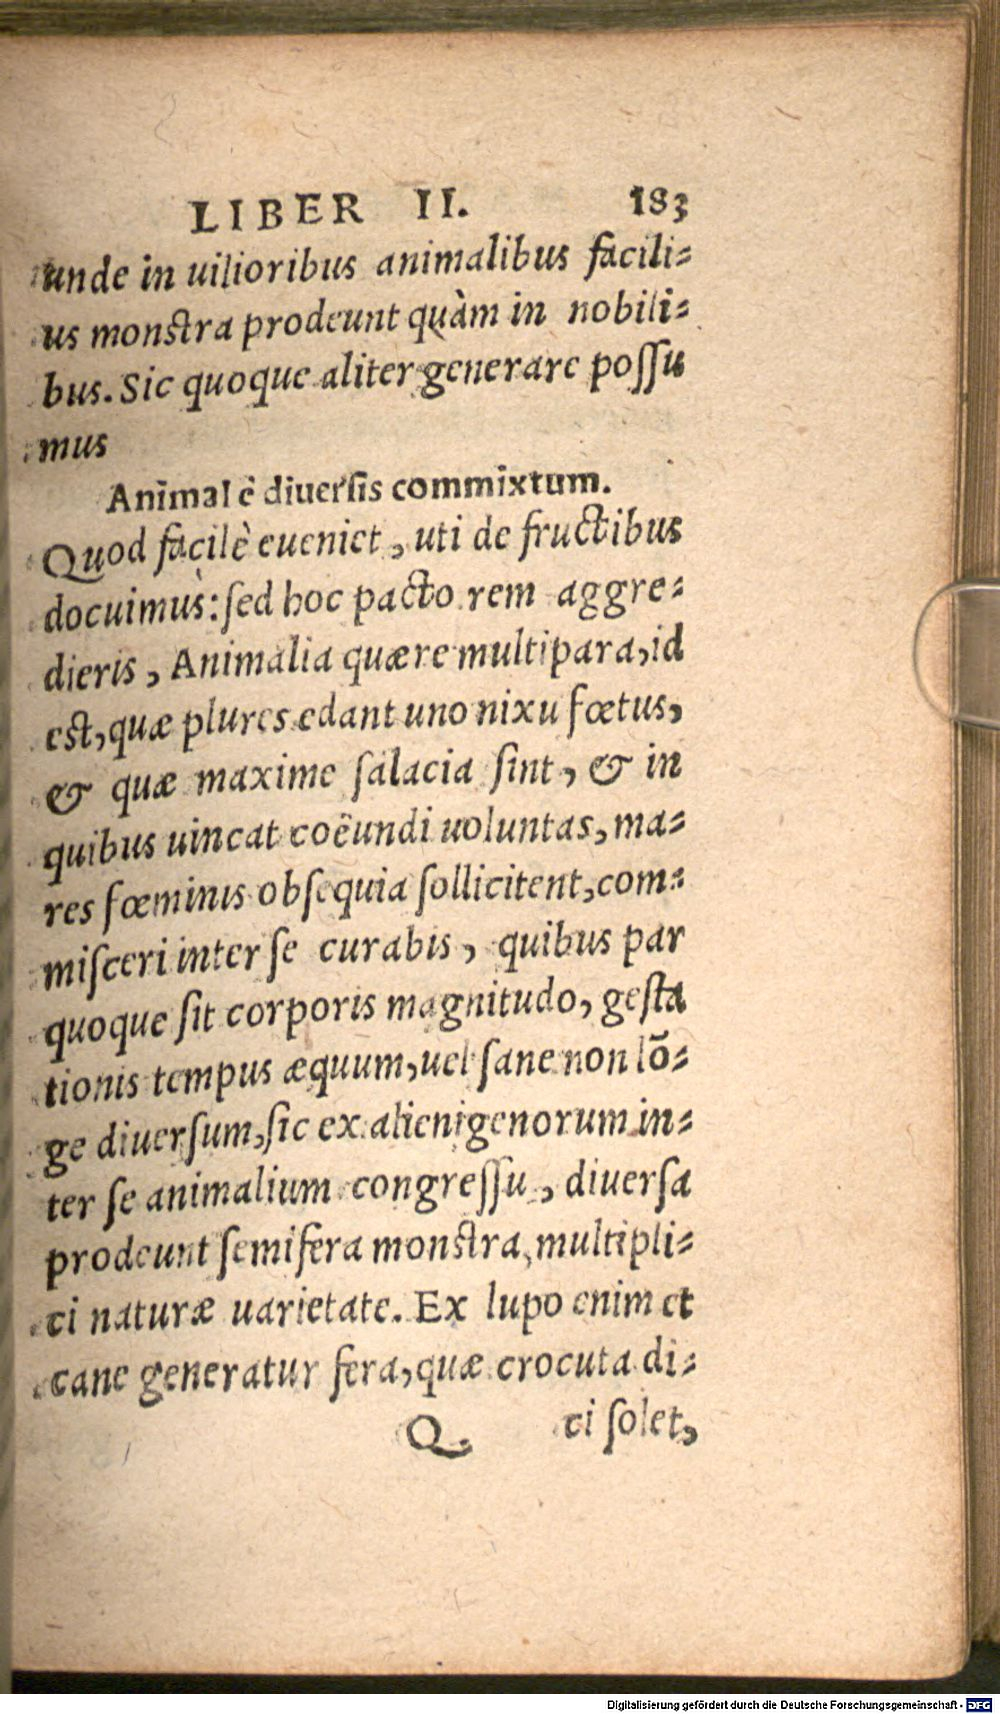 LIBER II. 183
unde in uilioribus animalibus facili-
us monstra prodeunt quàm in nobili-
bus. Sic quoque aliter generare possu
mus
Animal è diuersis commixtum.
Quod facilè eueniet, uti de fructibus
docuimus: sed hoc pacto rem aggre-
dieris, Animalia quære multipara, id
est, quæ plures edant uno nixu fœtus,
& quæ maxime salacia sint, & in
quibus uincat coëundi uoluntas, ma-
res fœminis obsequia sollicitent, com-
misceri inter se curabis, quibus par
quoque sit corporis magnitudo, gesta
tionis tempus æquum, uel sane non lō-
ge diuersum, sic ex alienigenorum in-
ter se animalium congressu, diuersa
prodeunt semifera monstra, multipli-
ci naturæ uarietate. Ex lupo enim et
cane generatur fera, quæ crocuta di-
Q ci solet,
Digitalisierung gefördert durch die Deutsche Forschungsgemeinschaft - DFG